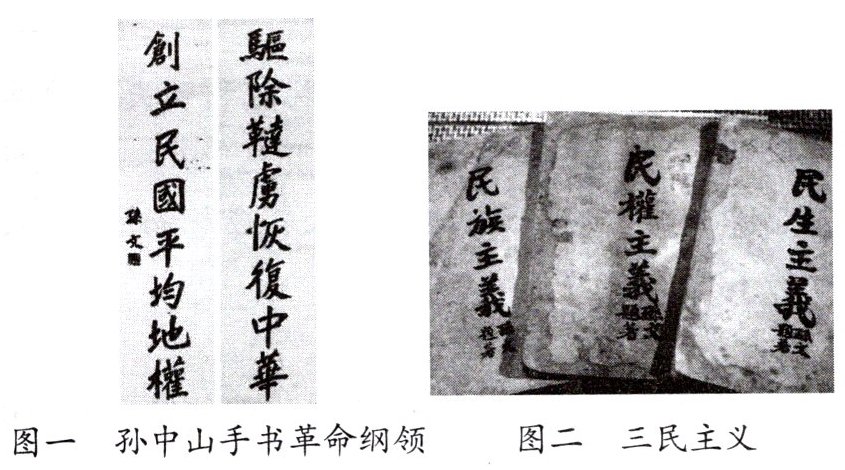 驅除韃虜恢復中華
創立民國平均地權
孫文
民族主義
民權主義
孫文
題著
民生主義
孫文
題著
图一 孙中山手书革命纲领
图二 三民主义